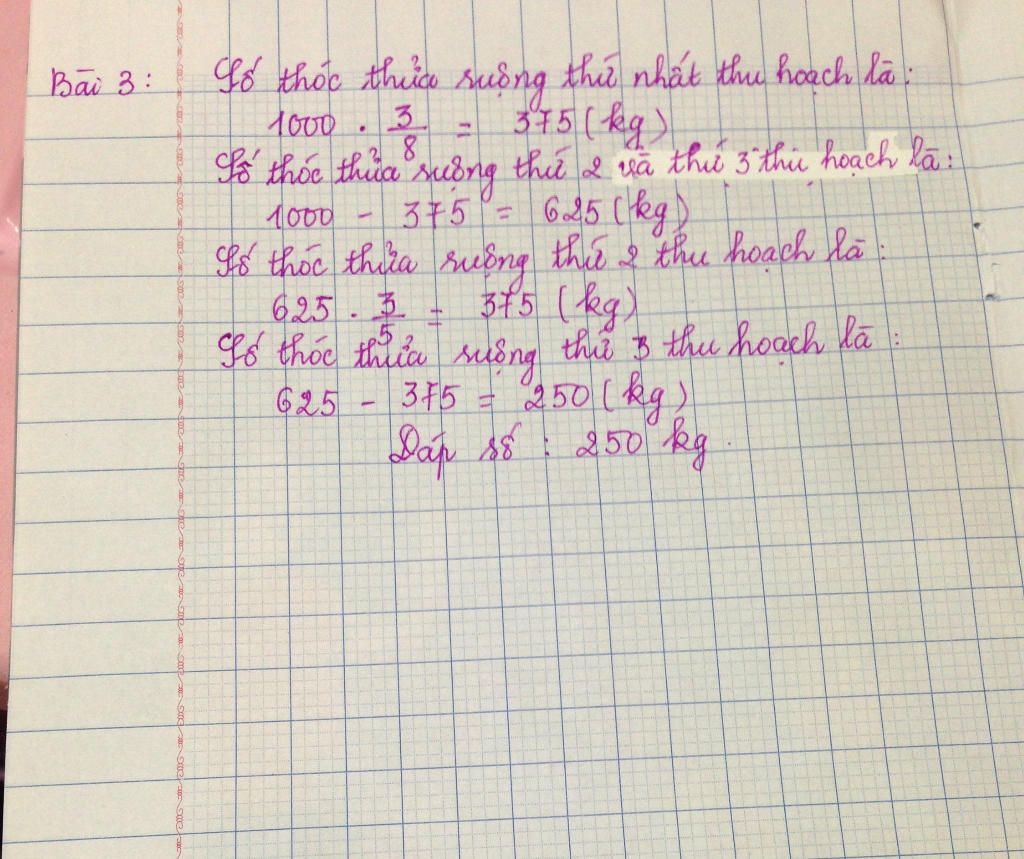 Bài 3: Số thóc thửa ruộng thứ nhất thu hoạch là:
1000 . 3/8 = 375 (kg)
Số thóc thửa ruộng thứ 2 và thứ 3 thu hoạch là:
1000 - 375 = 625 (kg)
Số thóc thửa ruộng thứ 2 thu hoạch là:
625 . 3/5 = 375 (kg)
Số thóc thửa ruộng thứ 3 thu hoạch là:
625 - 375 = 250 (kg)
Đáp số : 250 kg.